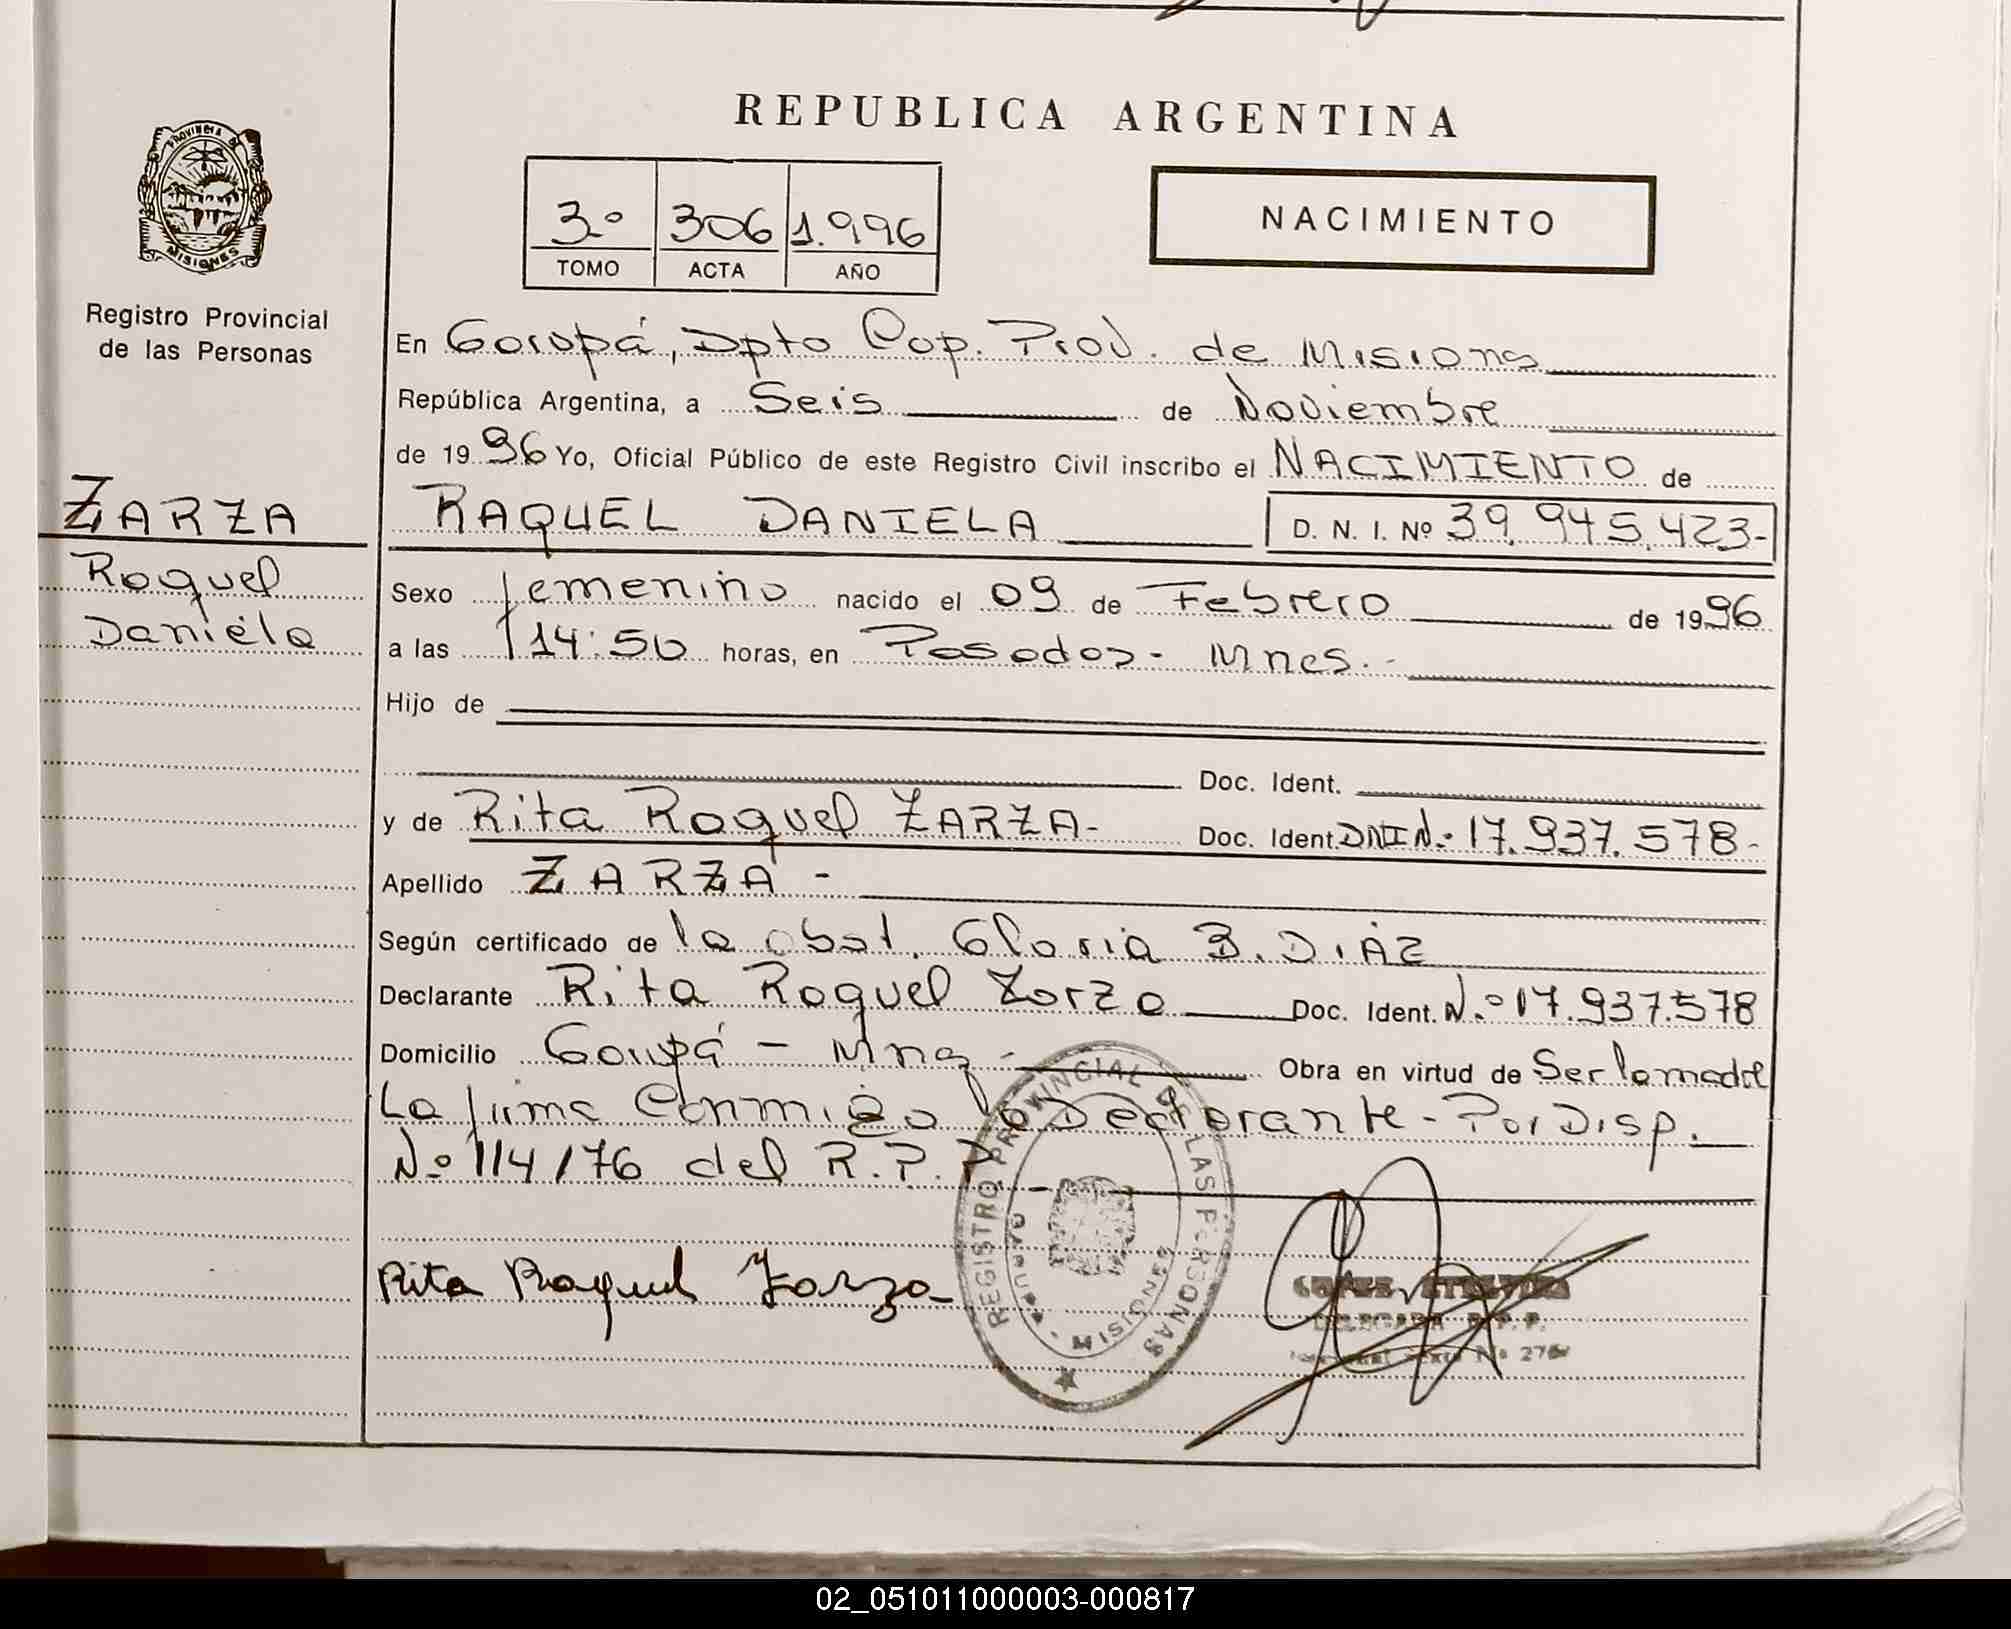 REPUBLICA ARGENTINA
PROVINCIA DE
MISIONES
Registro Provincial
de las Personas
3º 306 1.996
TOMO ACTA AÑO
NACIMIENTO
En Garupá, Dpto Cap. Prov. de Misiones
República Argentina, a Seis de Noviembre
de 1996 Yo, Oficial Público de este Registro Civil inscribo el NACIMIENTO de
ZARZA
Raquel
Daniela
RAQUEL DANIELA D. N. I. Nº 39.945.423-
Sexo femenino nacido el 09 de Febrero de 1996
a las 14:50 horas, en Posadas- Mnes.-
Hijo de
Doc. Ident.
y de Rita Raquel ZARZA- Doc. Ident. DNI N.º 17.937.578-
Apellido ZARZA -
Según certificado de la obst. Gloria B. DIAZ
Declarante Rita Raquel Zarza Doc. Ident. N.º 17.937.578
Domicilio Garupá - Mnes - Obra en virtud de Ser la madre
La firma Conmigo la Declarante - Por Disp.
Nº 114/76 del R.P.P.
Rita Raquel Zarza
REGISTRO PROVINCIAL DE LAS PERSONAS
MISIONES
DELEGADA R.P.P.
Nº 276
02_051011000003-000817